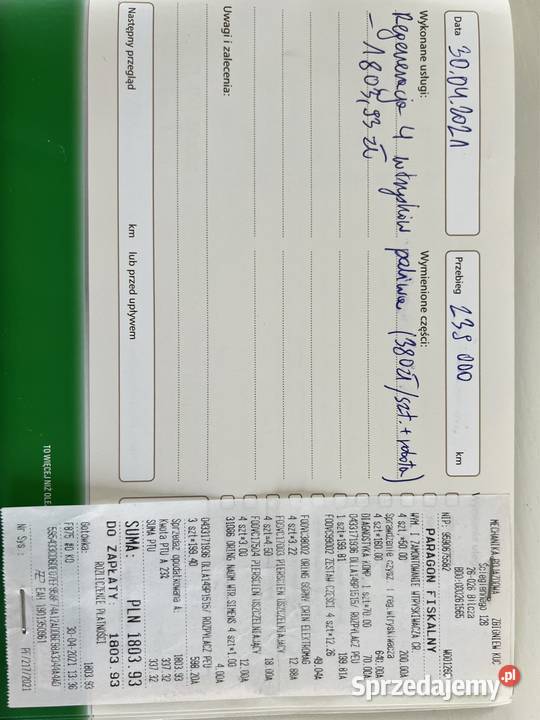 Data 30.04.2021
Przebieg 238 000 km
Wykonane usługi:
Wymienione części:
Regeneracja 4 wtrysków paliwa (380zł/szt. + robota)
– 1803,93 zł
Uwagi i zalecenia:
Następny przegląd
km lub przed upływem
TO WIĘCEJ NIŻ OLE
MECHANIKA POJAZDOWA
ZBIGNIEW KUC
Ściegiennego 128
26-026 Bilcza
BDO:000261565
NIP: 9590675562
PARAGON FISKALNY
WYM. I ZAMONTOWANIE WTRYSKIWACZA CR
4 szt.*50.00 200.00A
Sprawdzenie czysz. i reg.wtryskiwacza
4 szt*160.00 640.00A
DIAGNOSTYKA KOMP. 1 szt*70.00 70.00A
0433171936 DLLA149P1515/ ROZPYLACZ PEU
1 szt*199.81 199.81A
F00VC99002 ZESTAW CZĘŚCI 4 szt*12.26
49.04A
F00VC38002 ORING GÓRNY (PIN ELEKTROMAG
4 szt*3.22 12.88A
F00VC17503 PIERŚCIEŃ USZCZELNIAJĄCY
4 szt*4.50 18.00A
F00VC17504 PIERŚCIEŃ USZCZELNIAJĄCY
4 szt*3.00 12.00A
31086 ORING NADM.WTR.SIEMENS 4 szt*1.00
4.00A
0433171936 DLLA149P1515/ ROZPYLACZ PEU
3 szt*199.40 598.20A
Sprzedaż opodatkowana A: 1803.93
Kwota PTU A 23% 337.32
SUMA PTU 337.32
SUMA: PLN 1803.93
DO ZAPŁATY: 1803.93
ROZLICZENIE PŁATNOŚCI
Gotówka: 1803.93
30-04-2021 13:36
EAH 1901135096
Nr Sys.: PF/217/2021
Sprzedajemy.pl